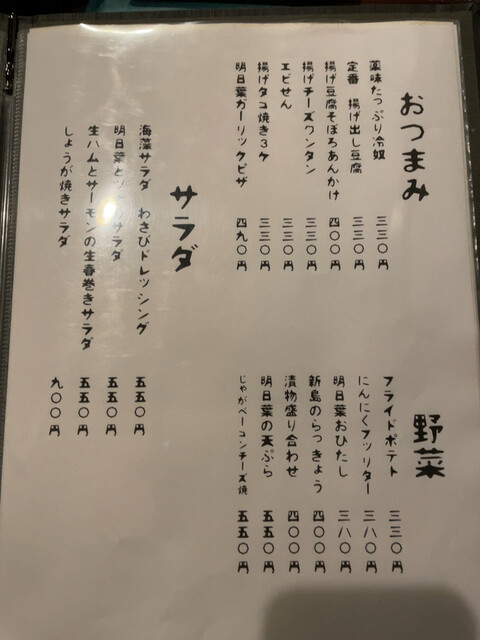 おつまみ
薬味たっぷり冷奴 三三〇円
定番 揚げ出し豆腐 三三〇円
揚げ豆腐そぼろあんかけ 四〇〇円
揚げチーズワンタン 三三〇円
エビせん 三三〇円
揚げタコ焼き3ケ 三三〇円
明日葉ガーリックピザ 四九〇円
野菜
フライドポテト 三三〇円
にんにくフリッター 三八〇円
明日葉おひたし 三八〇円
新島のらっきょう 四〇〇円
漬物盛り合わせ 四〇〇円
明日葉の天ぷら 五五〇円
じゃがベーコンチーズ焼 五五〇円
サラダ
海藻サラダ わさびドレッシング 五五〇円
明日葉とツナのサラダ 五五〇円
生ハムとサーモンの生春巻きサラダ 五五〇円
しょうが焼きサラダ 九〇〇円